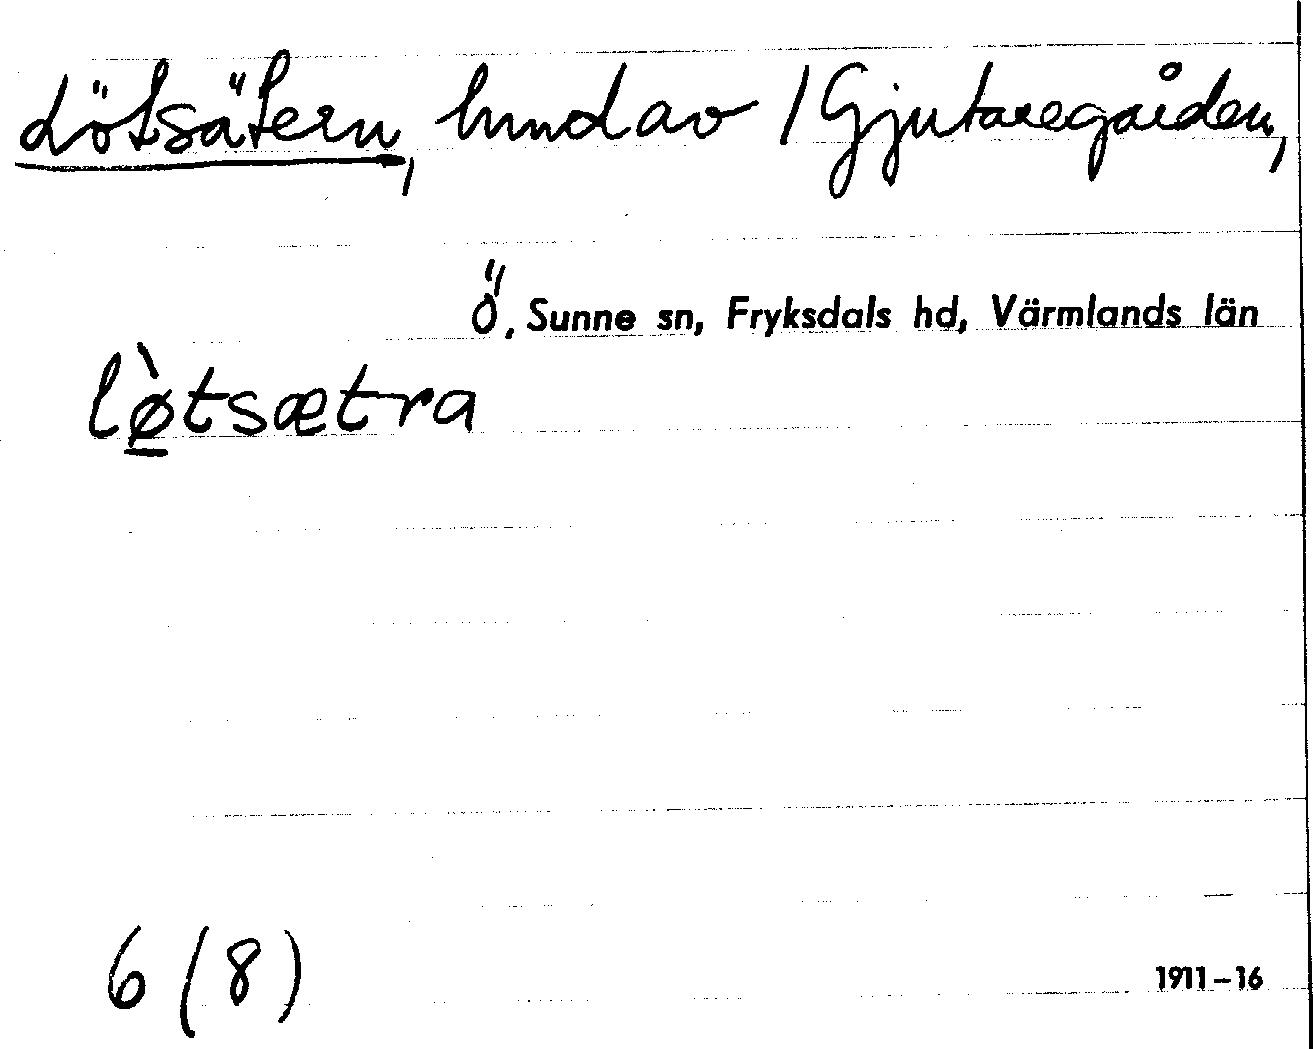 Lötsätern, hmd av 1 Gjutaregården,
Ö, Sunne sn, Fryksdals hd, Värmlands län
lø̲̀tsætra
6 (8)
1911–16